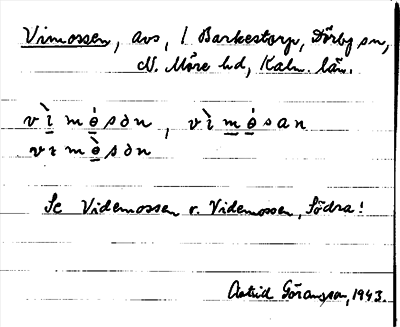 Vimossen, avs, i Barkestorp, Dörby sn,
N. Möre hd, Kalm. län.
vìmòsən, vìmòsan
vɩmòsən
Se Videmossen o. Videmossen, Södra!
Astrid Göransson, 1943.